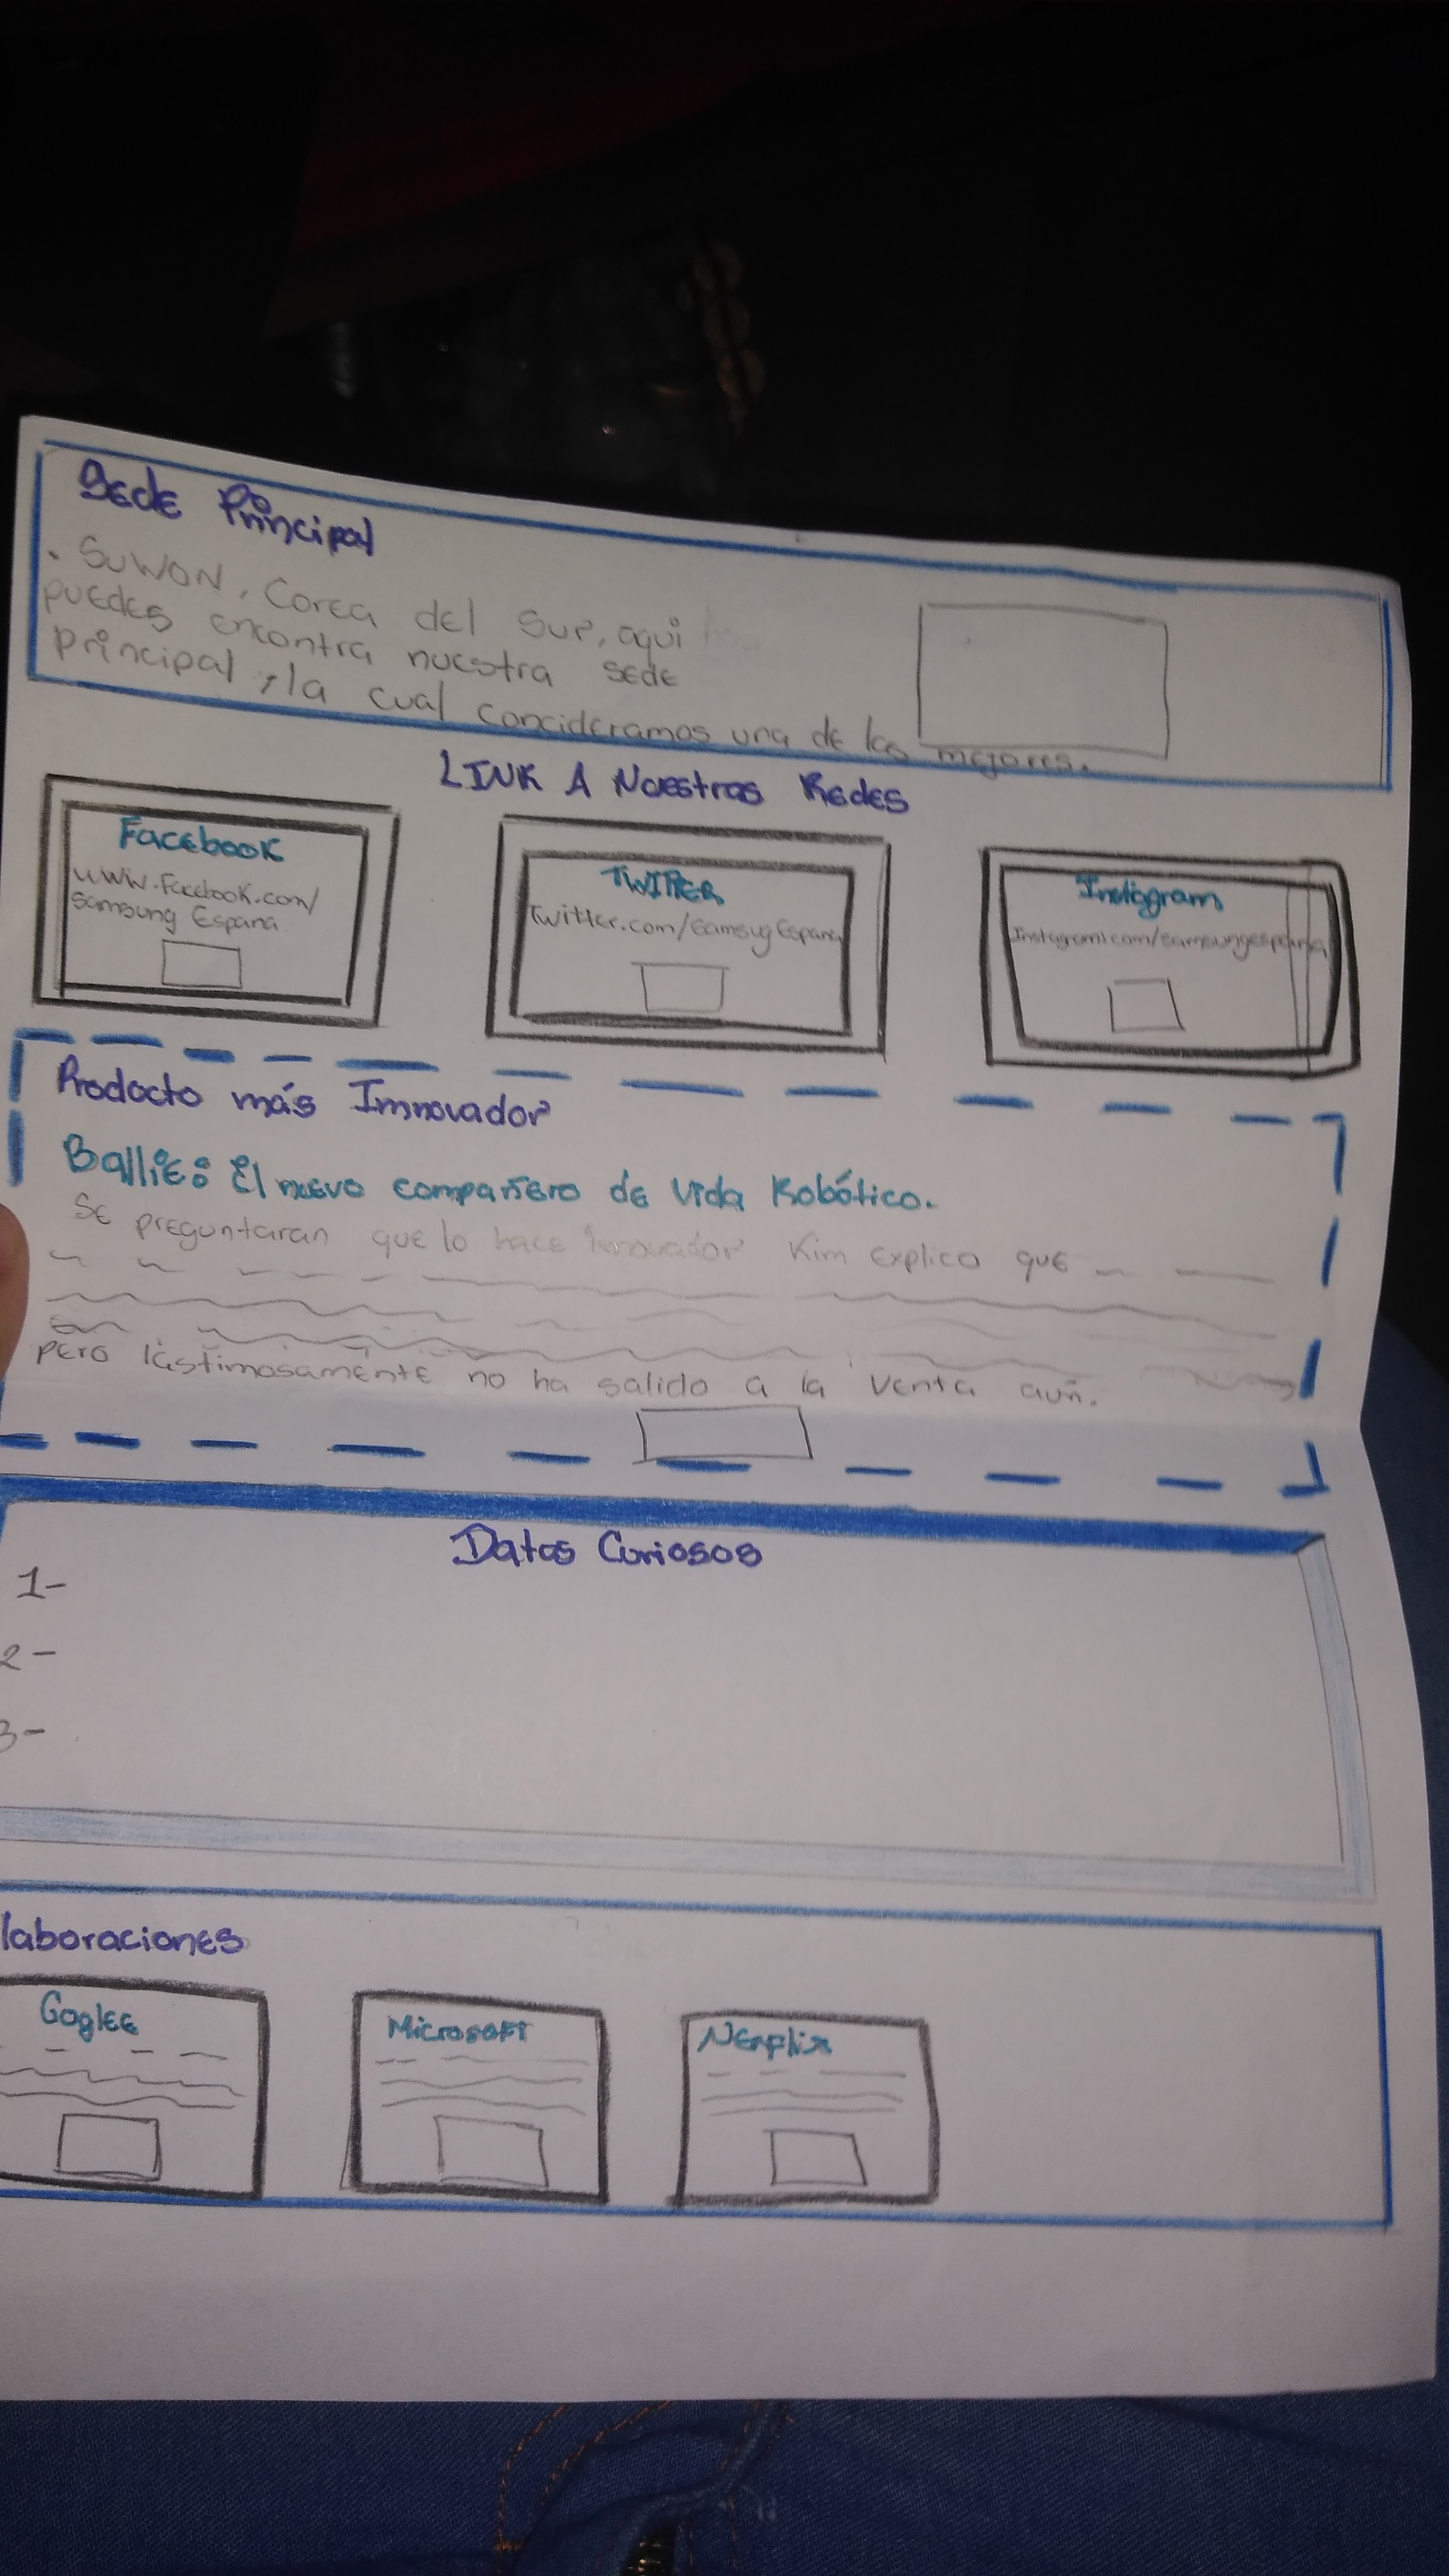 Sede Principal
. SUWON, Corea del Sur, aqui
puedes encontra nuestra sede
principal, la cual concideramos una de las mejores.
LINK A Nuestras Redes
Facebook
www.Facebook.com/
Samsung Espana
TWITTER
Twitter.com/SamsugEspana
Instagram
Instagram.com/samsungespana
Producto más Imnovador
Ballie: El nuevo compañero de vida Robótico.
Se preguntaran que lo hace Imnovador Kim explico que
pero lástimosamente no ha salido a la venta aún.
Datos Curiosos
1-
2-
3-
laboraciones
Goglee
Microsoft
Nenflix